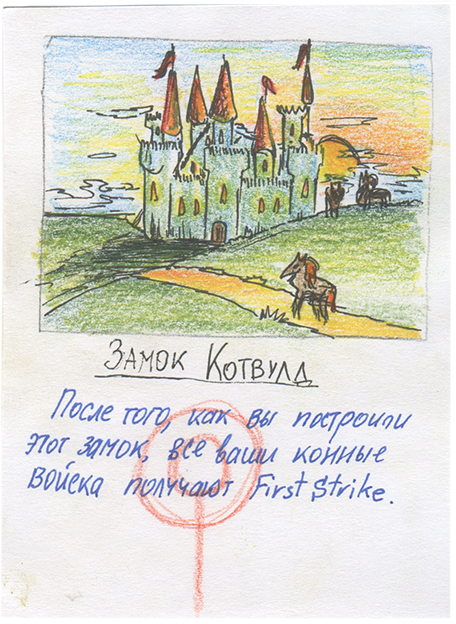 Замок Котвулд
После того, как вы построили
этот замок, все ваши конные
войска получают First Strike.